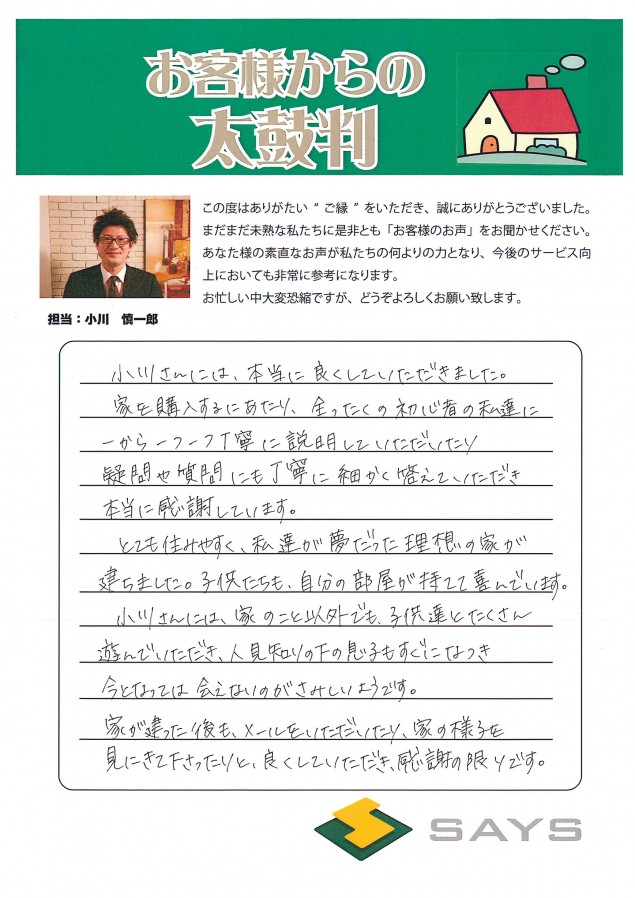 お客様からの
太鼓判
この度はありがたい“ご縁”をいただき、誠にありがとうございました。
まだまだ未熟な私たちに是非とも「お客様のお声」をお聞かせください。
あなた様の素直なお声が私たちの何よりの力となり、今後のサービス向
上においても非常に参考になります。
お忙しい中大変恐縮ですが、どうぞよろしくお願い致します。
担当：小川　慎一郎
小川さんには、本当に良くしていただきました。
家を購入するにあたり、全ったくの初心者の私達に
一から一つ一つ丁寧に説明していただいたり
疑問や質問にも丁寧に細かく答えていただき
本当に感謝しています。
とても住みやすく、私達が夢だった理想の家が
建ちました。子供たちも、自分の部屋が持てて喜んでいます。
小川さんには、家のこと以外でも、子供達とたくさん
遊んでいただき、人見知りの下の息子もすぐになつき
今となっては会えないのがさみしいようです。
家が建った後も、メールをいただいたり、家の様子を
見にきて下さったりと、良くしていただき、感謝の限りです。
SAYS